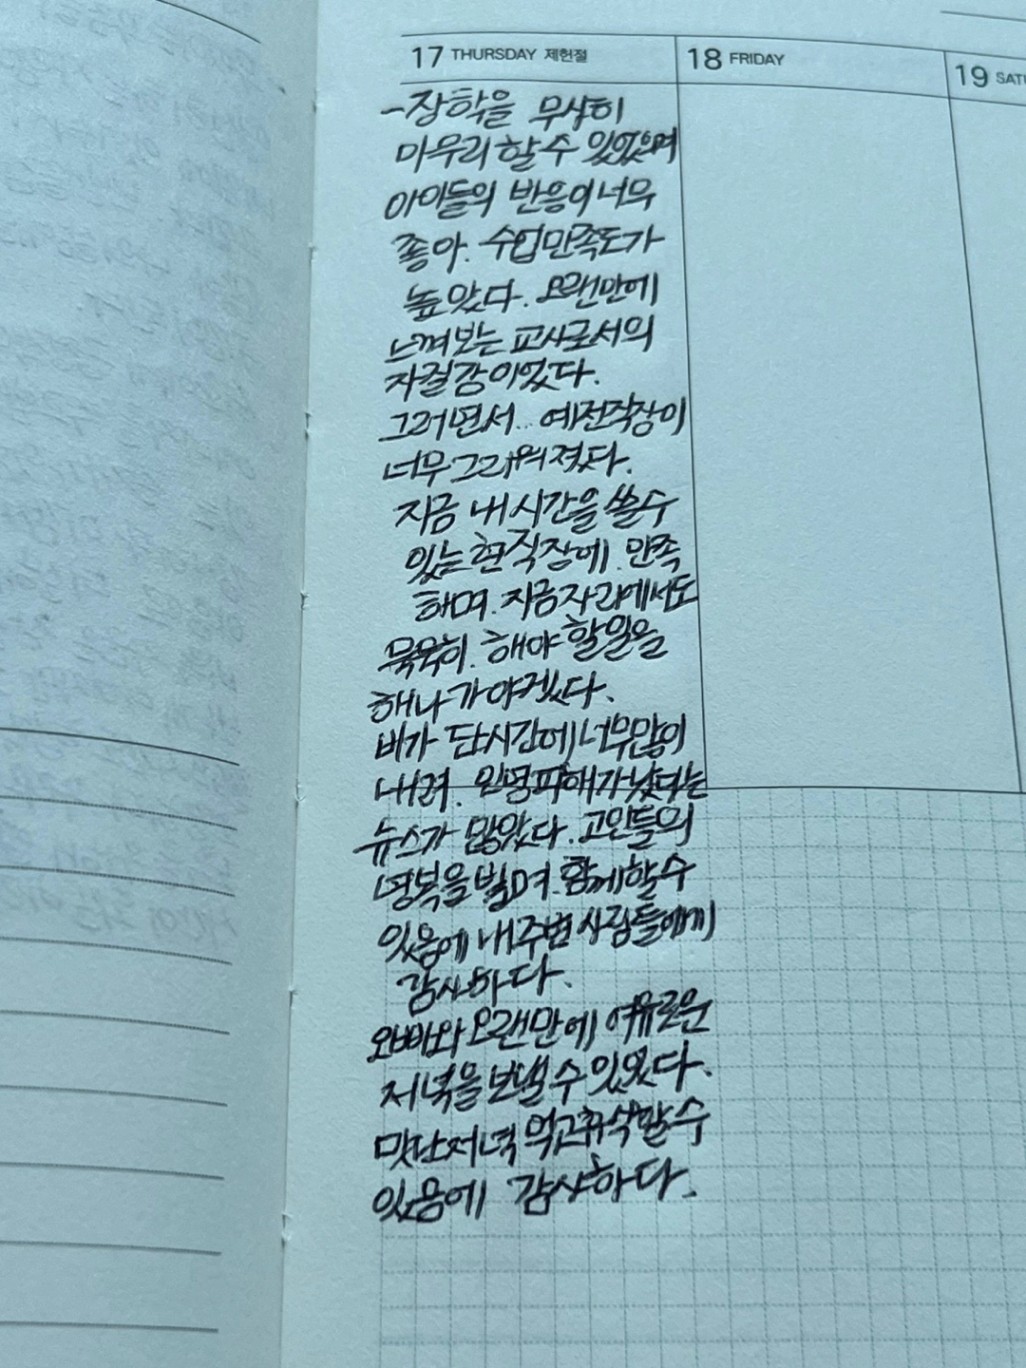 17 THURSDAY 제헌절
18 FRIDAY
19 SAT
-장학을 무사히
마무리 할 수 있었으며
아이들의 반응이 너무
좋아. 수업만족도가
높았다. 오랜만에
느껴보는 교사로서의
자긍감이었다.
그러면서.. 예전직장이
너무 그리워졌다.
지금 내 시간을 쓸 수
있는 현직장에 만족
하며. 지금 자리에서도
묵묵히. 해야 할 일을
해나가야겠다.
비가 단시간에 너무많이
내려. 인명피해가 났다는
뉴스가 많았다. 고인들의
명복을 빌며. 함께할 수
있음에 내 주변 사람들에게
감사하다.
오빠와 오랜만에 여유로운
저녁을 보낼 수 있었다.
맛난저녁 먹고 휴식할 수
있음에 감사하다.